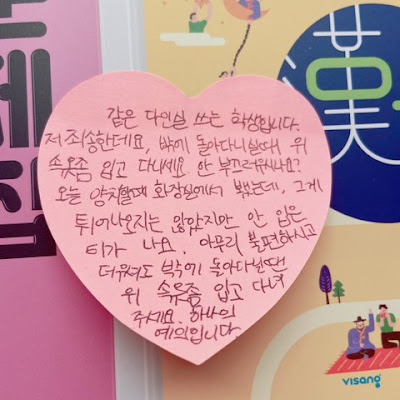 같은 다인실 쓰는 학생입니다.
저 죄송한데요, 밖에 돌아다니실때 위
속옷좀 입고 다니세요. 안 부끄러우시나요?
오늘 양치할때 화장실에서 봤는데, 그게
튀어나오지는 않았지만 안 입은
티가 나요. 아무리 불편하시고
더우셔도 밖에 돌아다닐땐
위 속옷좀 입고 다녀
주세요. 하나의
예의입니다.
漢
visang